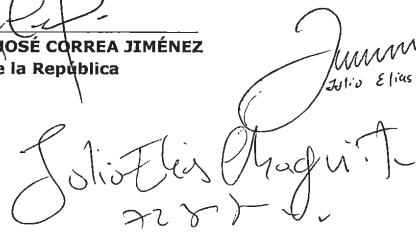 JOSÉ CORREA JIMÉNEZ
e la República
Julio Elias
Julio Elias Chagui